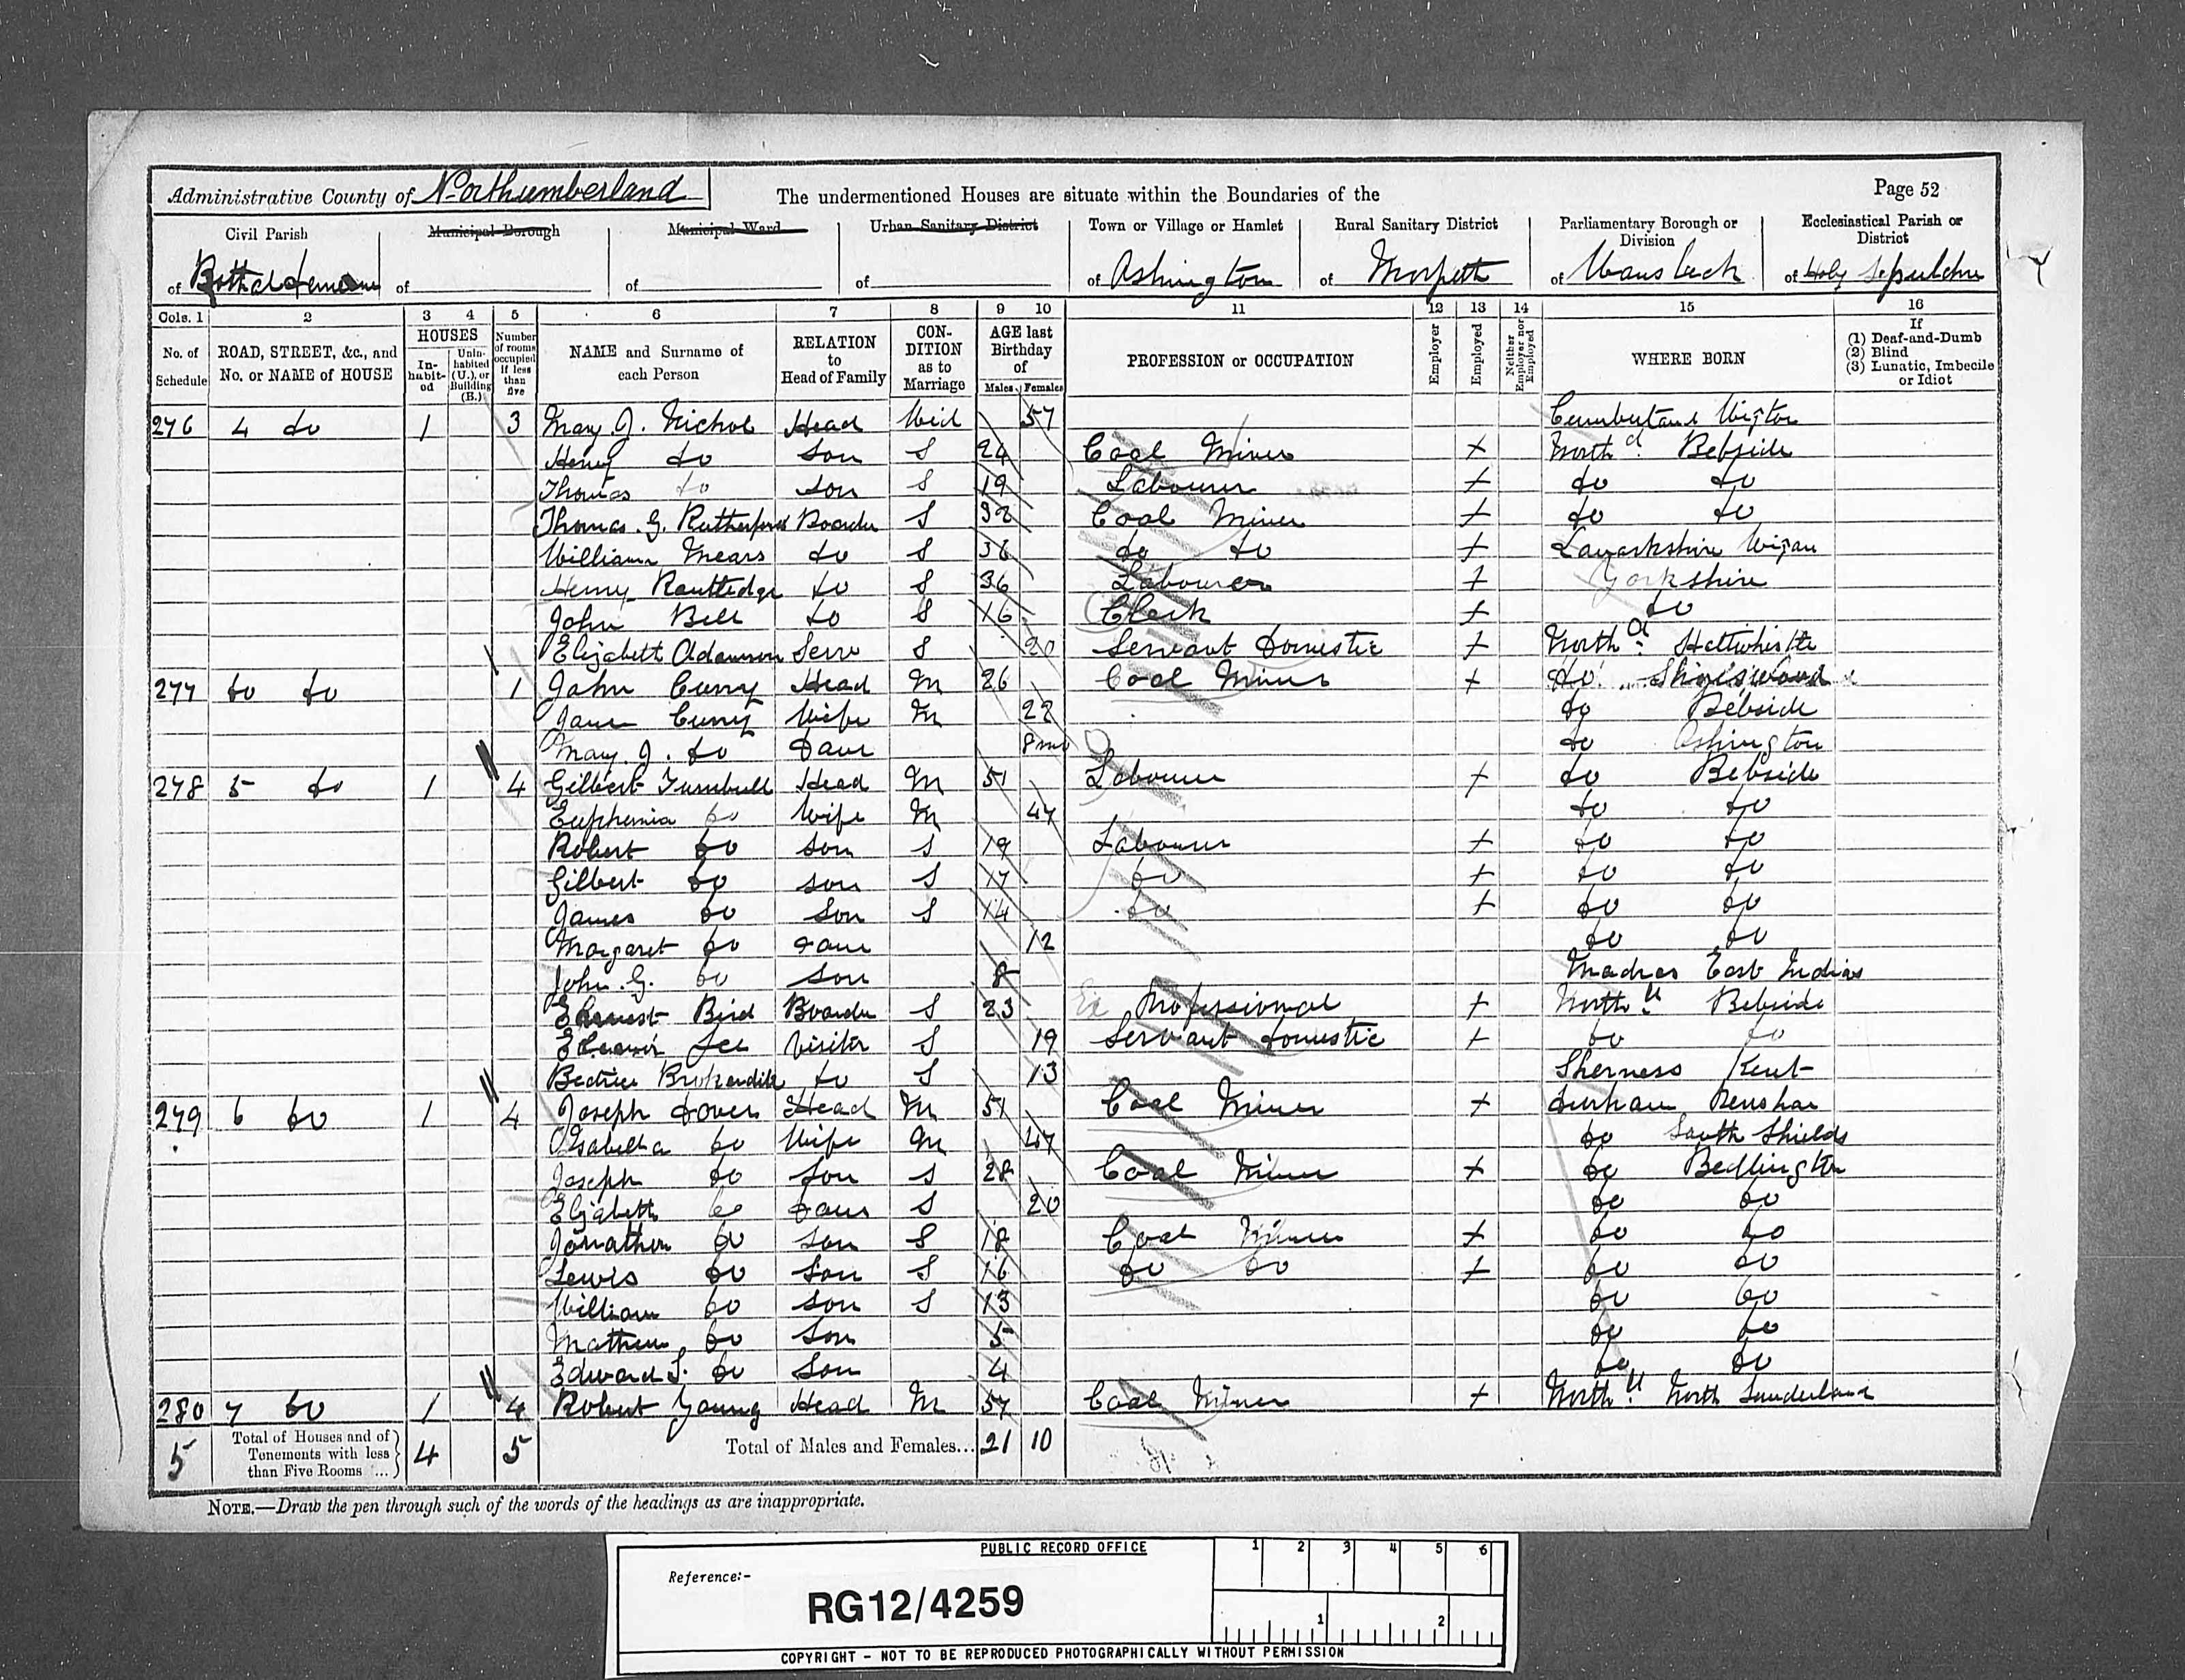 Administrative County of Northumberland The undermentioned Houses are situate within the Boundaries of the Page 52
Civil Parish Municipal Borough Municipal Ward Urban Sanitary District Town or Village or Hamlet Rural Sanitary District Parliamentary Borough or Division Ecclesiastical Parish or District
of Bothal of of of of Ashington of Morpeth of Wansbeck of Holy Sepulchre
Cols. 1 2 3 4 5 6 7 8 9 10 11 12 13 14 15 16
No. of Schedule ROAD, STREET, &c., and No. or NAME of HOUSE HOUSES In-habit-ed Unin-habited (U.), or Building (B.) Number of rooms occupied if less than five NAME and Surname of each Person RELATION to Head of Family CON-DITION as to Marriage AGE last Birthday of Males Females PROFESSION or OCCUPATION Employer Employed Neither Employer nor Employed WHERE BORN If (1) Deaf-and-Dumb (2) Blind (3) Lunatic, Imbecile or Idiot
276 4 do 1 3 Mary J. Nichol Head Wid 57 Cumberland Wigton
Henry do Son S 24 Coal Miner + North d Bebside
Thomas do Son S 19 Labourer + do do
Thomas G. Rutherford Boarder S 32 Coal Miner + do do
William Mears do S 36 do do + Wigan
Henry Routledge do S 36 Labourer + Yorkshire
John Bell do S 16 Clerk + do
Elizabeth Adamson Serv S 20 Servant Domestic + North d Haltwhistle
277 do do 1 John Curry Head M 26 Coal Miner + do
Jane Curry Wife M 22 do Bebside
Mary J. do Daur 8mo do Ashington
278 5 do 1 4 Gilbert Turnbull Head M 51 Labourer + do Bebside
Euphemia do Wife M 47 do do
Robert do Son S 19 Labourer + do do
Gilbert do Son S 17 do + do do
James do Son S 14 do + do do
Margaret do Daur 12 do do
John G. do Son 8 Madras East Indias
Ernest Bird Boarder S 23 Professional + North d Bebside
Eleanor Lee Visitor S 19 Servant Domestic + do do
Beatrice do S 13 Sherness Kent
279 6 do 1 4 Joseph Dover Head M 51 Coal Miner + Durham Penshaw
Isabella do Wife M 47 do South Shields
Joseph do Son S 28 Coal Miner + do Bedlington
Elizabeth do Daur S 20 do do
Jonathon do Son S 18 Coal Miner + do do
Lewis do Son S 16 do do + do do
William do Son S 13 do do
Mathew do Son 5 do do
Edward S. do Son 4 do do
280 7 do 1 4 Robert Young Head M 57 Coal Miner + North d North Sunderland
5 Total of Houses and of Tenements with less than Five Rooms ... 4 5 Total of Males and Females... 21 10
NOTE.—Draw the pen through such of the words of the headings as are inappropriate.
PUBLIC RECORD OFFICE 1 2 3 4 5 6
Reference:-
RG12/4259
1 2
COPYRIGHT - NOT TO BE REPRODUCED PHOTOGRAPHICALLY WITHOUT PERMISSION